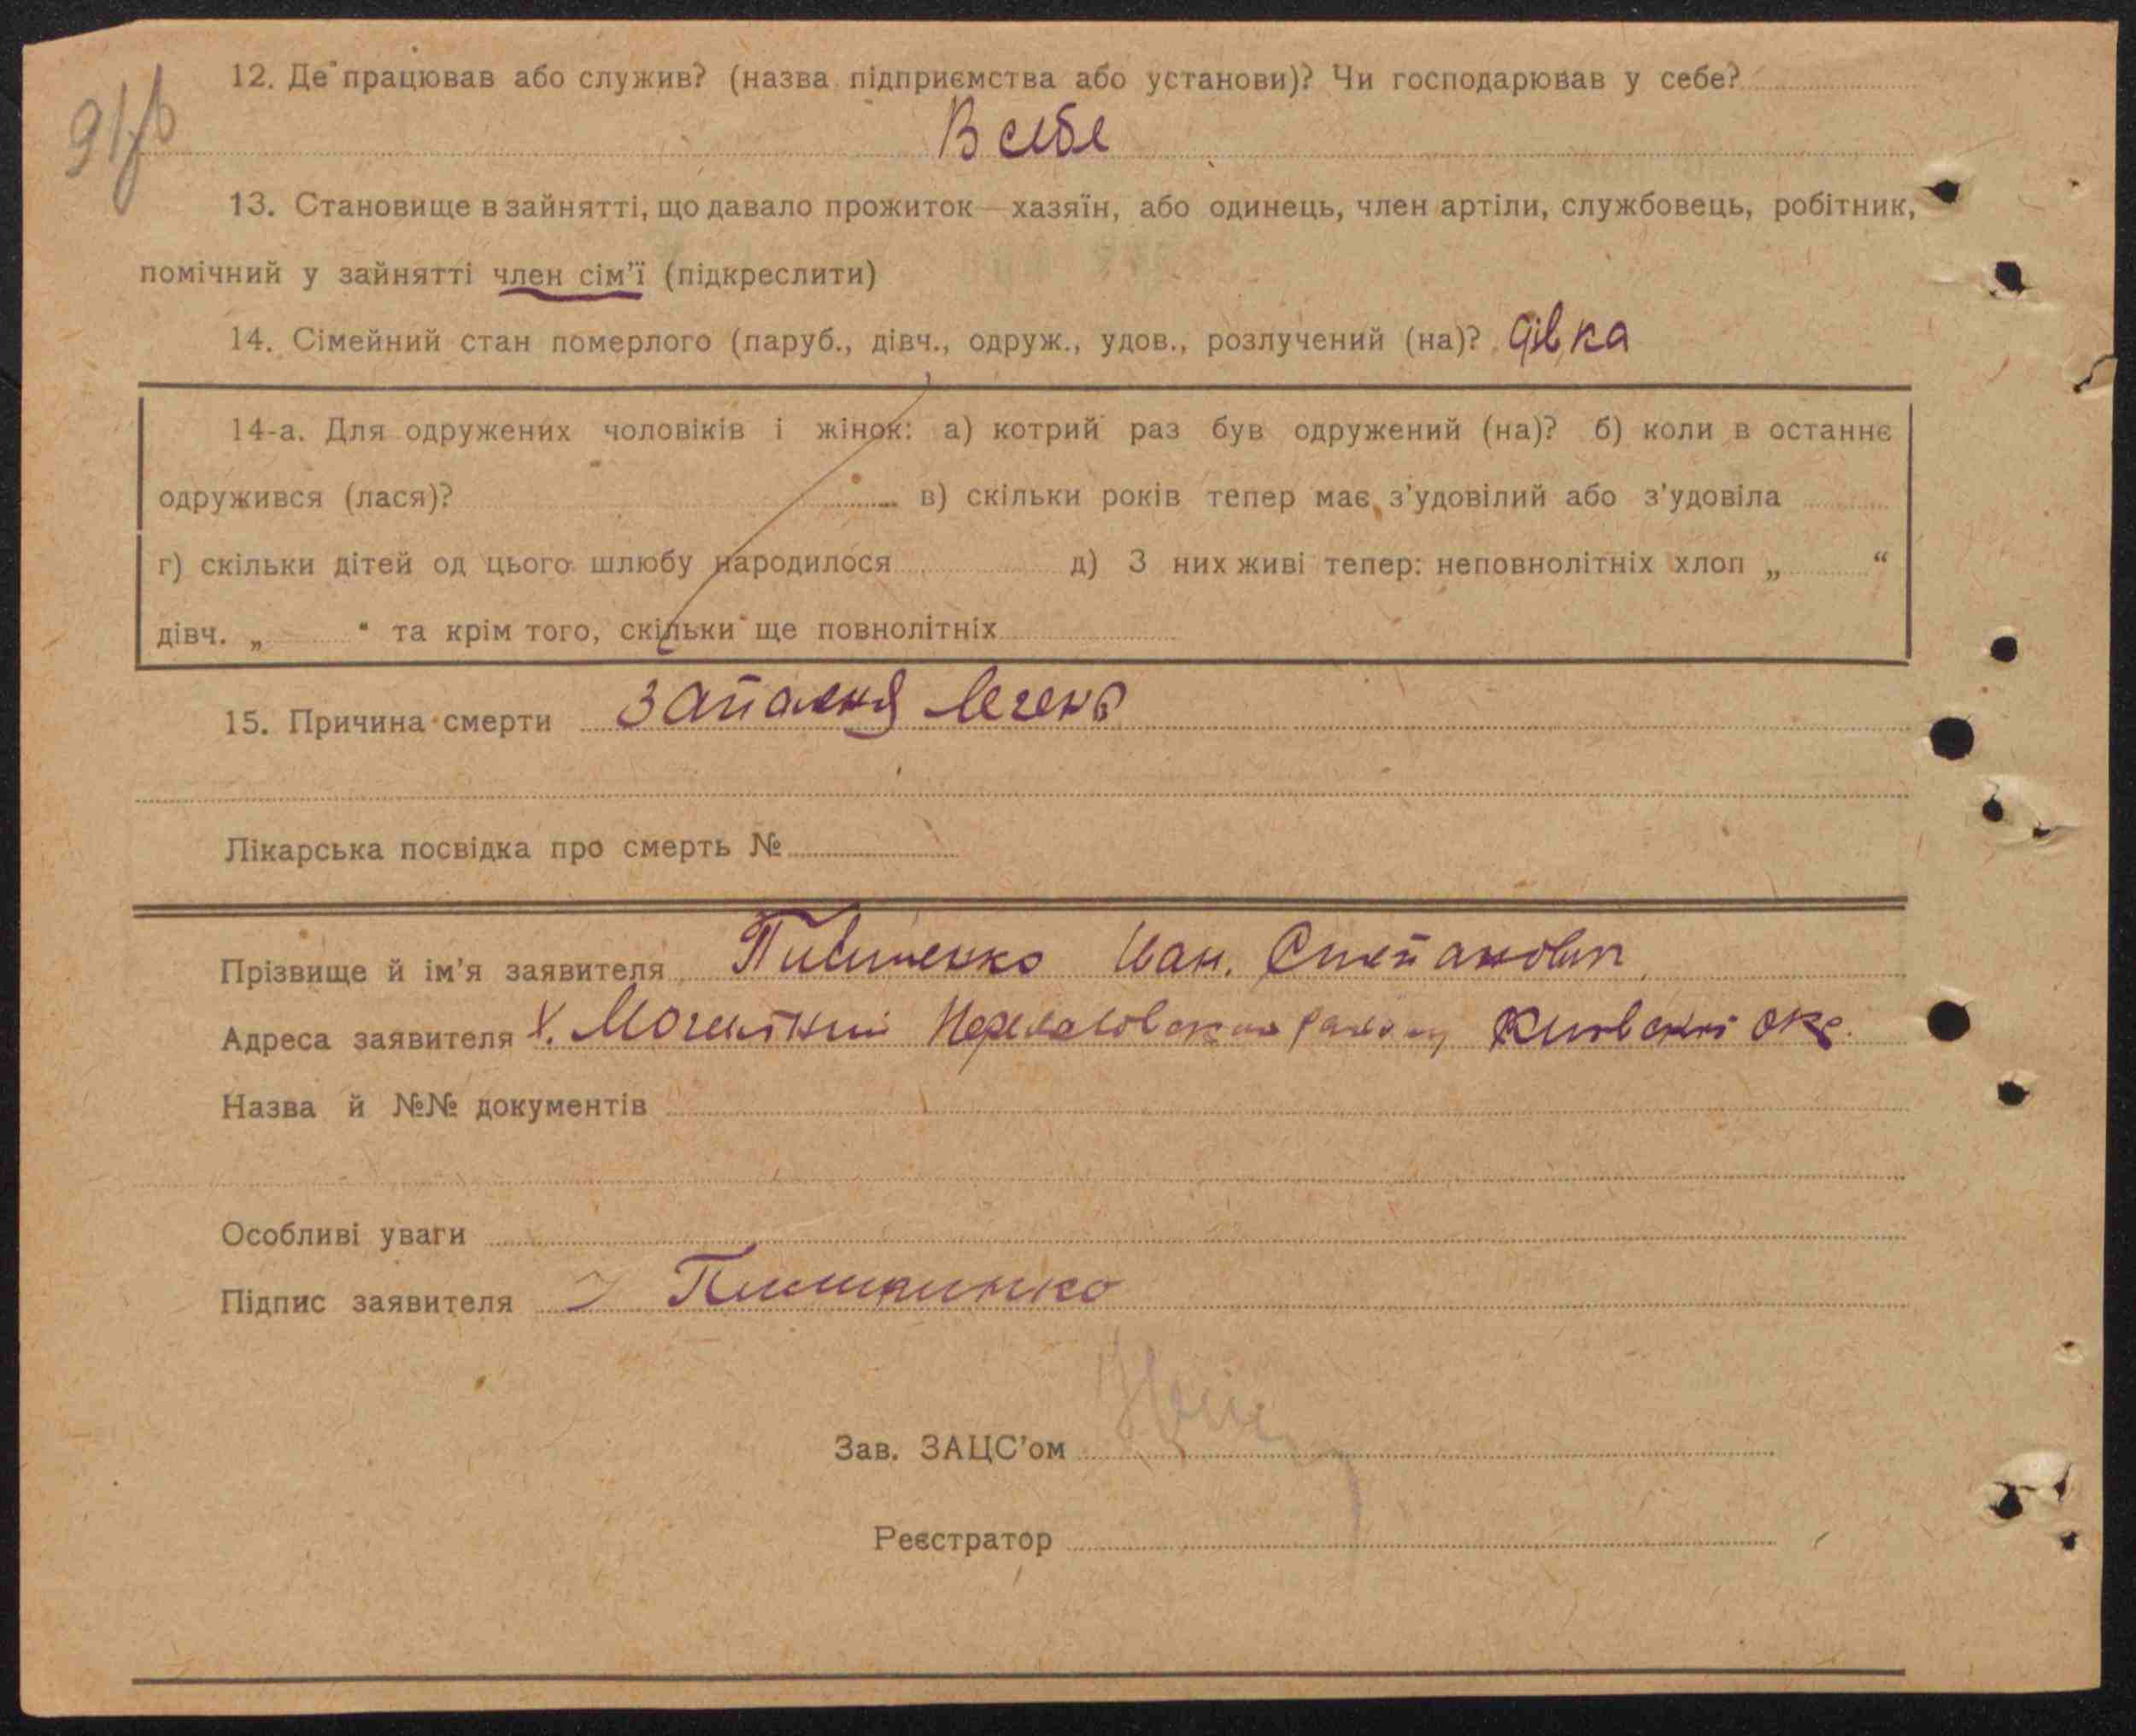 12. Де працював або служив? (назва підприємства або установи)? Чи господарював у себе?
В себе
13. Становище в зайнятті, що давало прожиток—хазяїн, або одинець, член артіли, службовець, робітник,
помічний у зайнятті член сім'ї (підкреслити)
14. Сімейний стан померлого (паруб., дівч., одруж., удов., розлучений (на)? дівка
14-а. Для одружених чоловіків і жінок: а) котрий раз був одружений (на)? б) коли в останнє
одружився (лася)? в) скільки років тепер має з'удовілий або з'удовіла
г) скільки дітей од цього шлюбу народилося д) З них живі тепер: неповнолітніх хлоп „ “
дівч. „ “ та крім того, скільки ще повнолітніх
15. Причина смерти Запалення легень
Лікарська посвідка про смерть №
Прізвище й ім'я заявителя Іван. Степанович
Адреса заявителя х. Київської окр.
Назва й №№ документів
Особливі уваги
Підпис заявителя
Зав. ЗАЦС'ом
Реєстратор